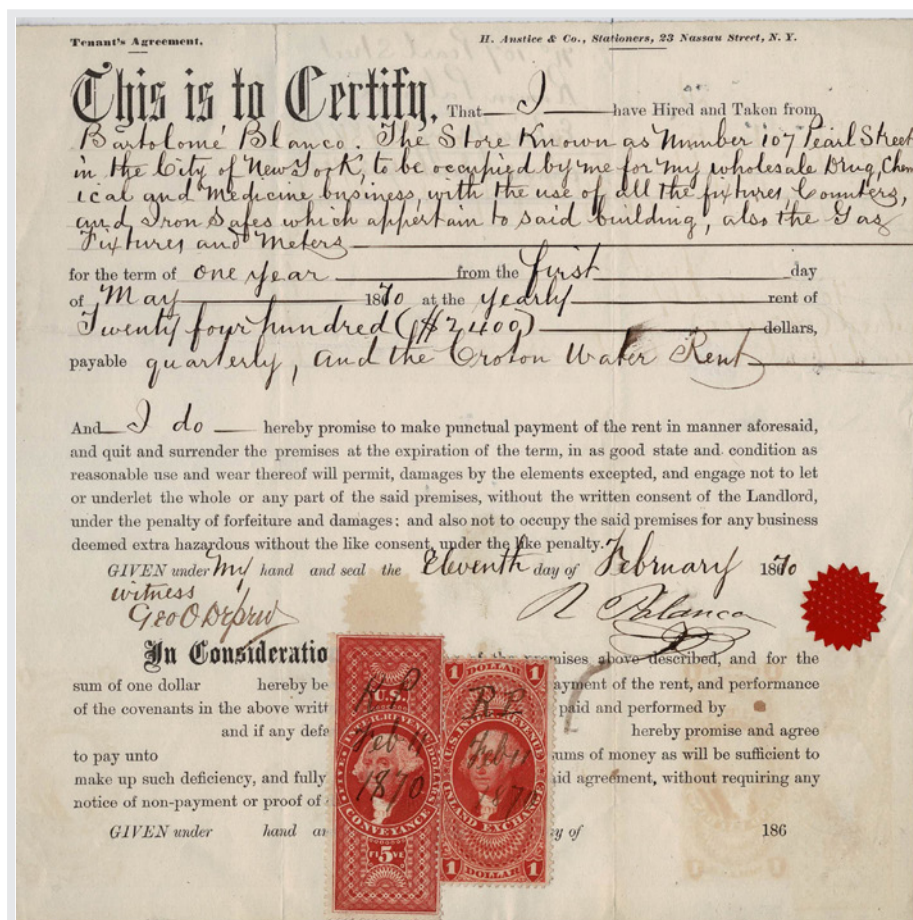 Tenant's Agreement. H. Anstice & Co., Stationers, 23 Nassau Street, N. Y.
This is to Certify, That I have Hired and Taken from
Bartolomé Blanco. The Store Known as Number 107 Pearl Street
in the City of New York, to be occupied by me for my wholesale Drug, Chem
ical and Medicine business, with the use of all the fixtures, Counters,
and Iron Safes which appertain to said building, also the Gas
Fixtures and Meters
for the term of one year from the first day
of May 1870 at the yearly rent of
Twenty four hundred ($2400) dollars,
payable quarterly, and the Croton Water Rent
And I do hereby promise to make punctual payment of the rent in manner aforesaid,
and quit and surrender the premises at the expiration of the term, in as good state and condition as
reasonable use and wear thereof will permit, damages by the elements excepted, and engage not to let
or underlet the whole or any part of the said premises, without the written consent of the Landlord,
under the penalty of forfeiture and damages; and also not to occupy the said premises for any business
deemed extra hazardous without the like consent, under the like penalty.
GIVEN under my hand and seal the Eleventh day of February 1870
witness
Geo O R Palanca
In Consideratio above described, and for the
sum of one dollar hereby be ayment of the rent, and performance
of the covenants in the above writt paid and performed by
and if any defa hereby promise and agree
to pay unto sums of money as will be sufficient to
make up such deficiency, and fully id agreement, without requiring any
notice of non-payment or proof of
GIVEN under hand an y of 186
R P
U.S.
INTER. REVENUE
Feb 11
1870
CONVEYANCE
FIVE 5
1 DOLLAR 1
R P
U.S. INTER. REVENUE
Feb 11
1870
INLAND EXCHANGE
1 DOLLAR 1